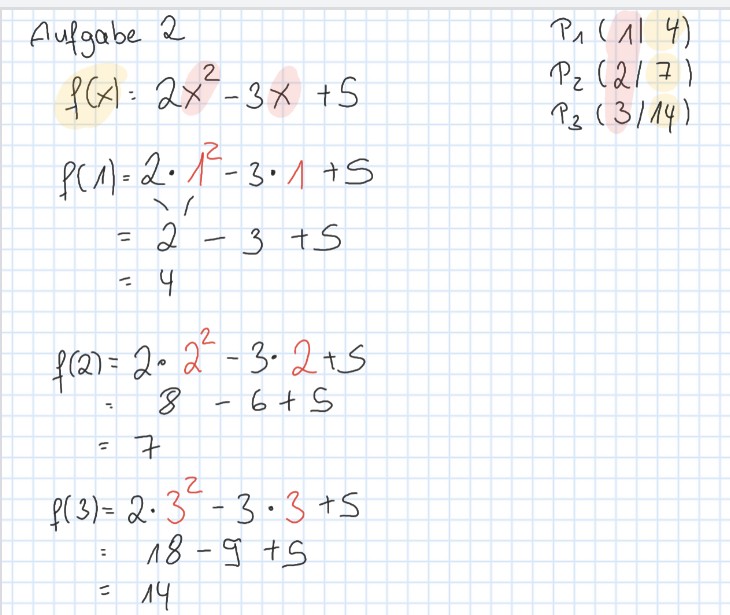 Aufgabe 2
P₁ (1| 4)
f(x) = 2x² - 3x + 5
P₂ (2/7)
P₃ (3/14)
f(1) = 2 · 1² - 3 · 1 + 5
= 2 - 3 + 5
= 4
f(2) = 2 · 2² - 3 · 2 + 5
= 8 - 6 + 5
= 7
f(3) = 2 · 3² - 3 · 3 + 5
= 18 - 9 + 5
= 14